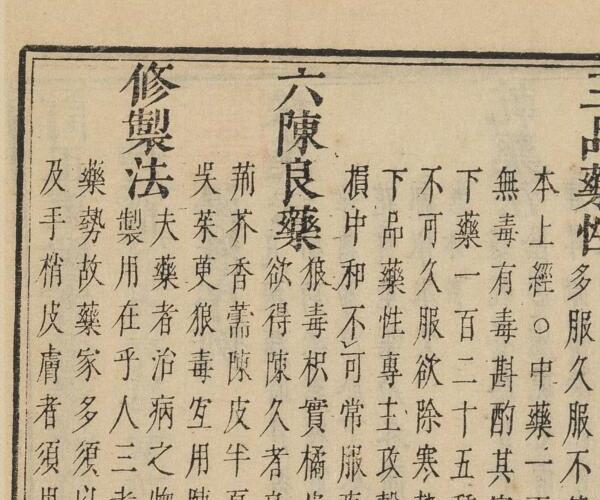 三品藥性
多服久服不
本上經○中藥一
無毒有毒斟酌其
下藥一百二十五種
不可久服欲除寒熱
下品藥性專主攻擊
損中和不可常服
六陳良藥
狼毒枳實橘皮
欲得陳久者良
荊芥香薷陳皮半夏
吳茱萸狼毒宜用陳
修製法
夫藥者治病之物
製用在乎人三者
藥勢故藥家多須以
及手梢皮膚者須用